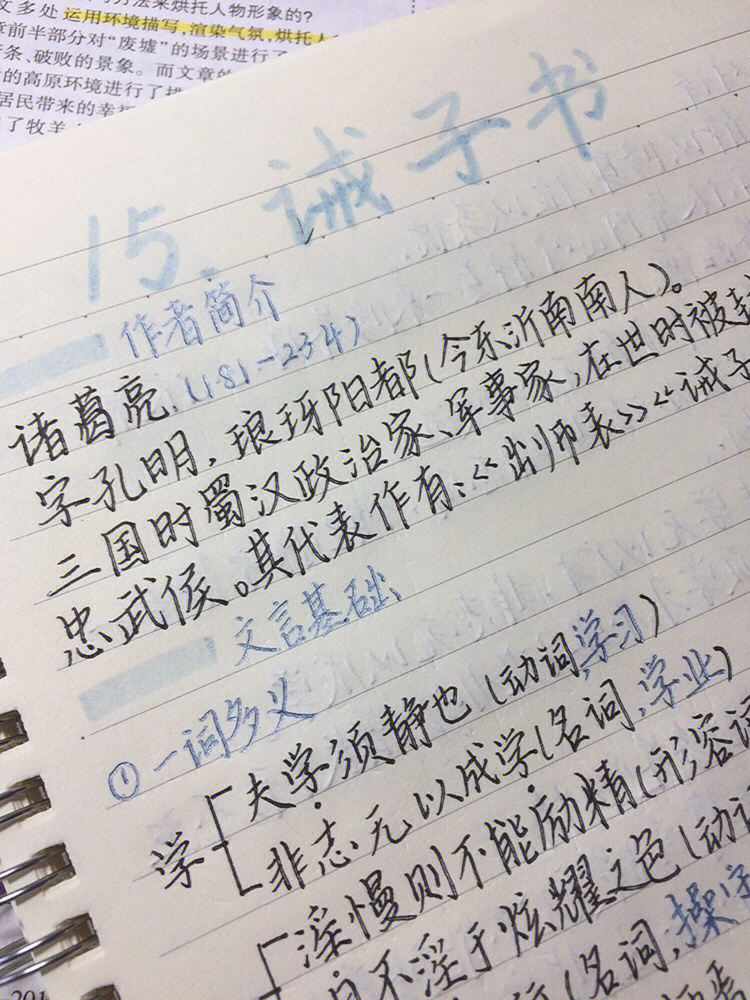 方法来烘托人物形象的?
文多处运用环境描写,渲染气氛,烘托人
章前半部分对“废墟”的场景进行了
条、破败的景象。而文章的
的高原环境进行了描
居民带来的幸福
了牧羊
15.诫子书
作者简介
诸葛亮(181-234)
字孔明,琅玡阳都(今东沂南南人)。
三国时蜀汉政治家、军事家,在世时被封
忠武侯。其代表作有:《出师表》《诫子
文言基础
①一词多义
学
夫学须静也(动词,学习)
非志无以成学(名词,学业)
淫慢则不能励精(形容词
不淫于炫耀之色(动词
(名词,操守
201